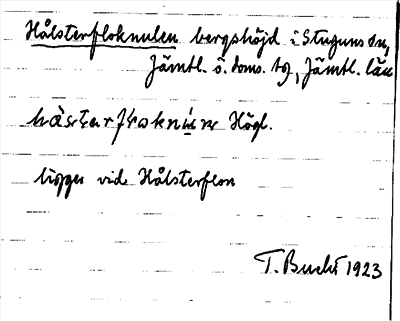 Hålsterfloknulen bergshöjd i Stuguns sn,
Jämtl. ö. doms. tg, Jämtl. län
Högl.
ligger vid Hålsterflon
T. Bucht 1923